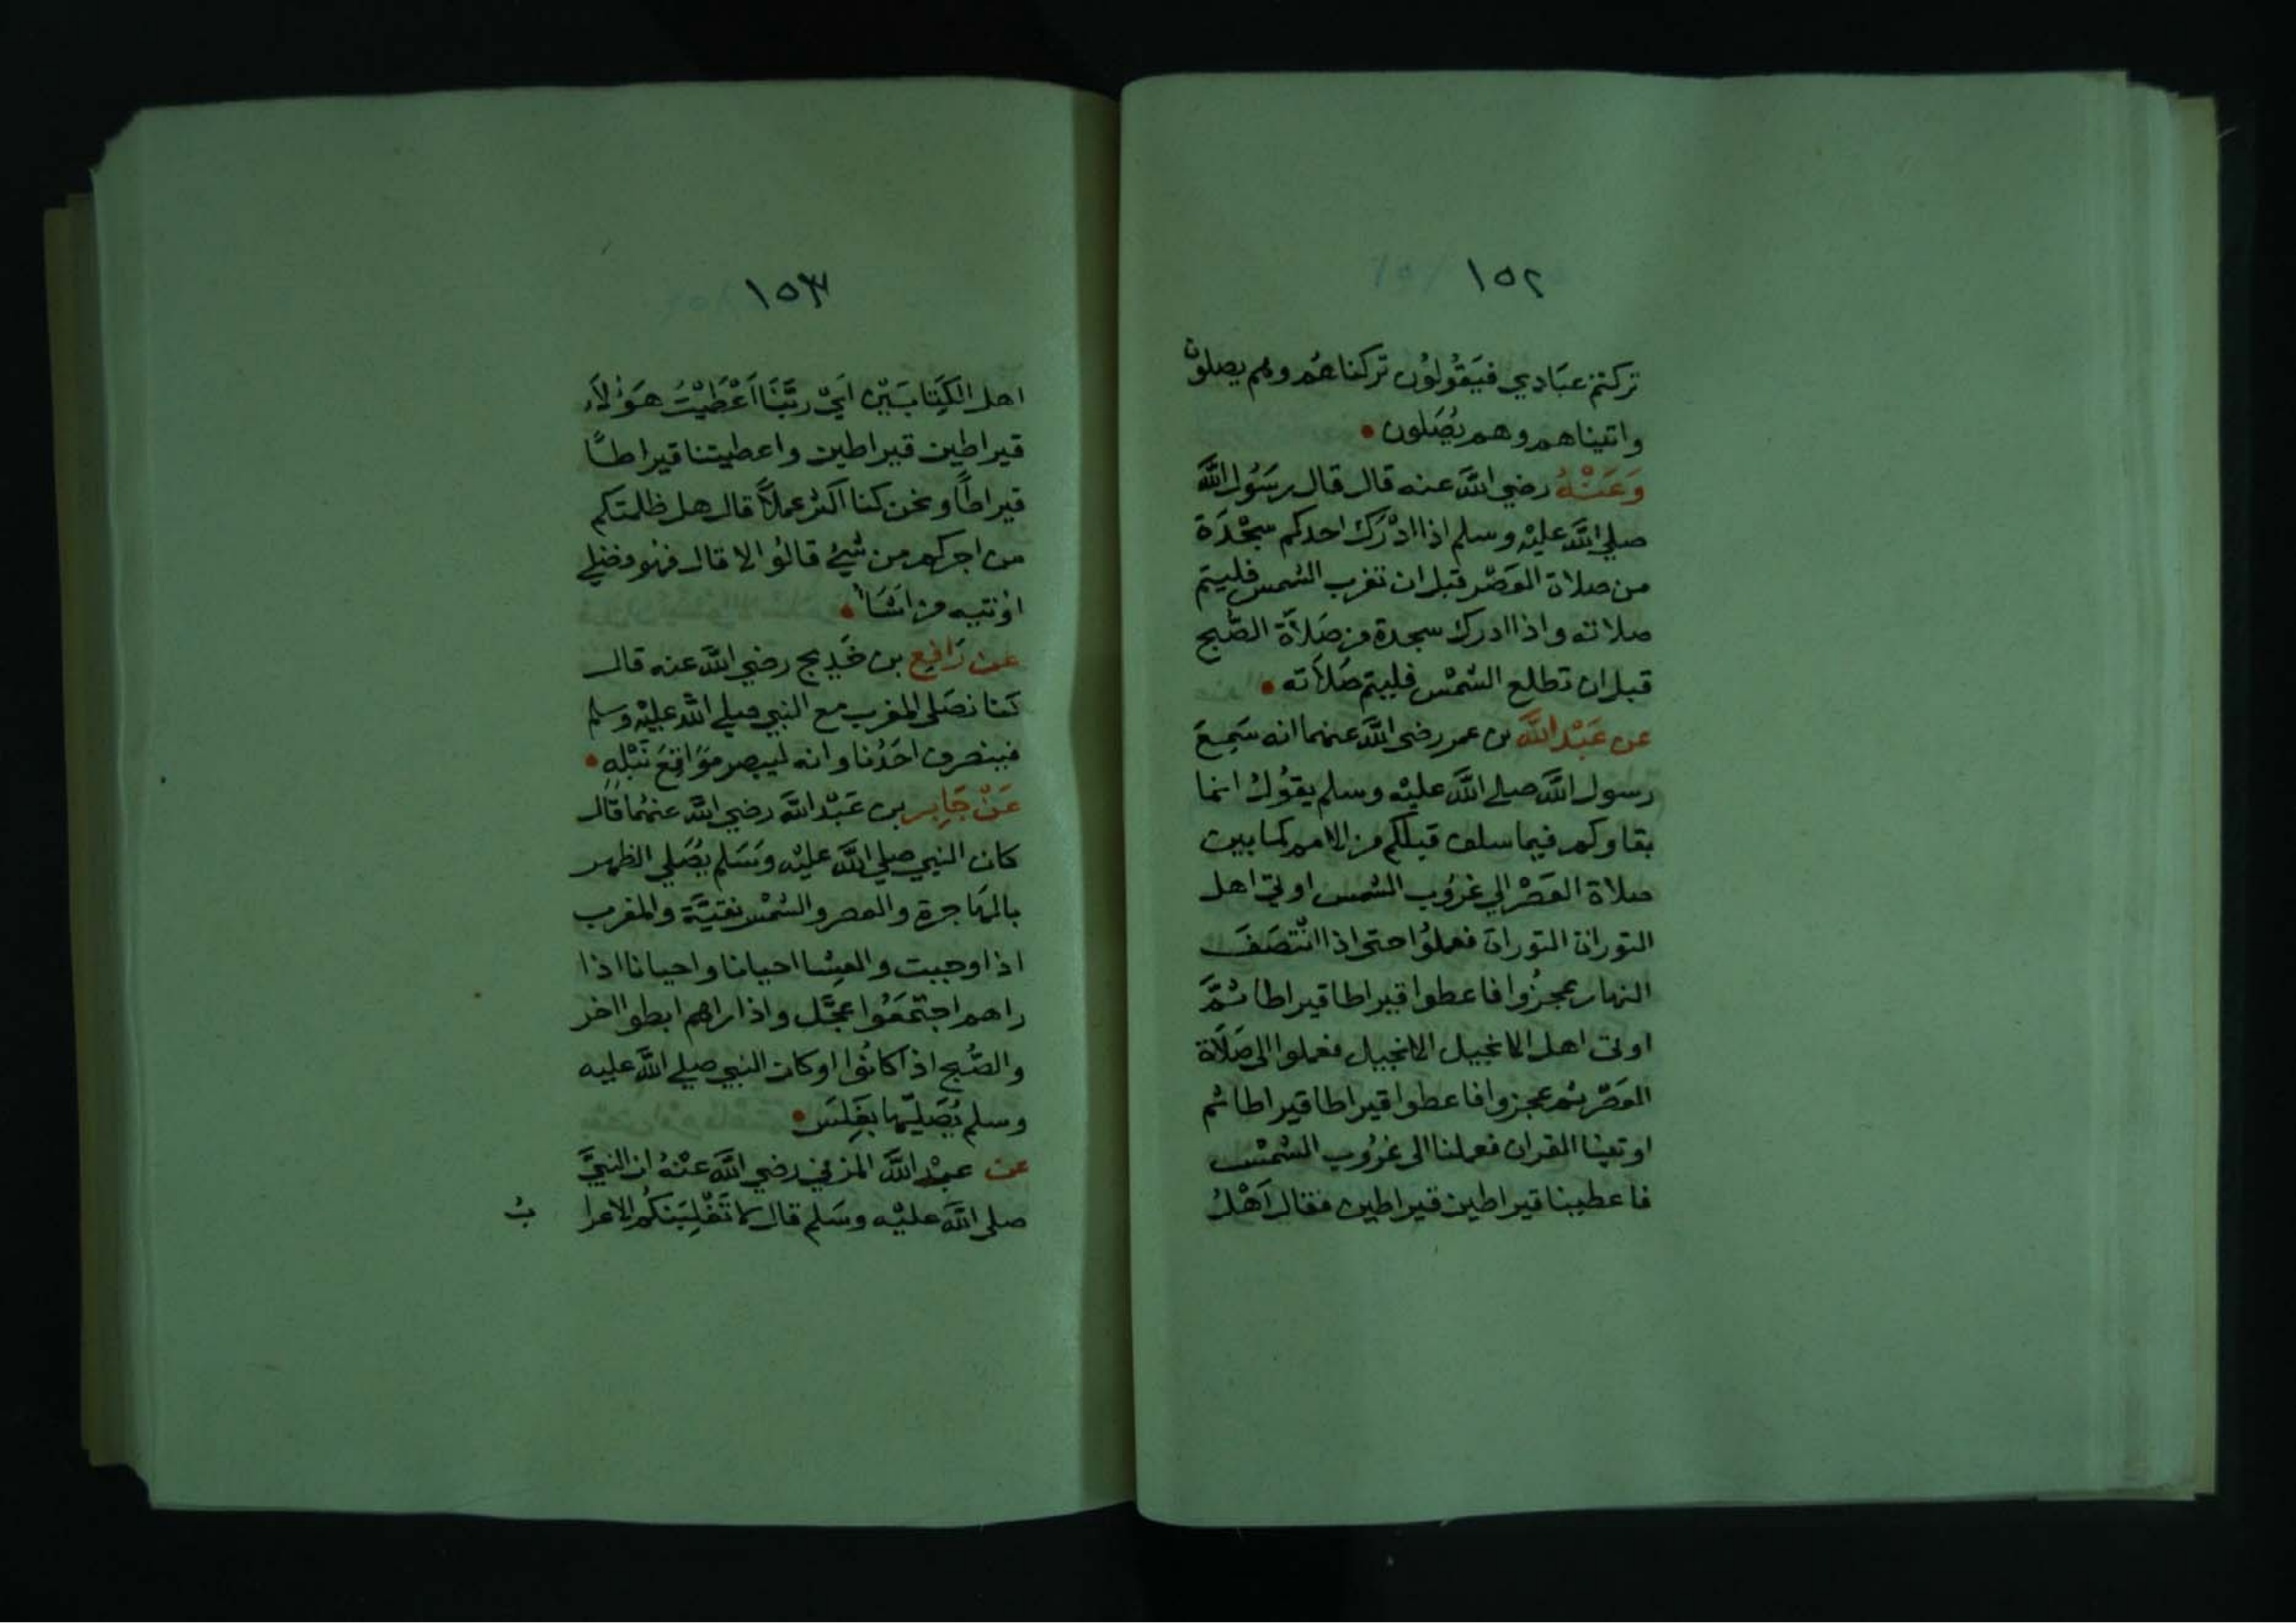 ١٥٢
تركتم عبَادي فيَقُولوُن تركناهُم وهم يصلون
واتيناهم وهم يُصَلون
وَعَنْهُ رضي اللَّه عنه قال قال رسَوُل اللَّه
صلي اللَّه عليْه وسلم اذا ادْرَك احدكم سجْدَة
من صلاة العَصْر قبل ان تغرب الشمس فليتم
صلاته واذا ادرك سجدة من صَلاَة الصّبح
قبل ان تطلع الشمْس فليتم صَلاَته
عن عَبْد اللَّه بن عمر رضي اللَّه عنهما انه سَمِعَ
رسول اللَّه صلي اللَّه عليْه وسلم يقوُل انما
بقاوكم فيما سلف قبلكم من الامم كما بين
صلاة العَصْر الي غروُب الشمس اوتي اهل
التوراة التوراة فعملوُا حتى اذا انْتصَفَ
النهار عجزُوا فاعطوا قيراطا قيراطا ثمَّ
اوتى اهل الانجيل الانجيل فعملوا الى صَلَاة
العَصْر ثم عجزوا فاعطوا قيراطا قيراطا ثم
اوتينا القران فعملنا الى غرُوب الشمْس
فاعطينا قيراطين قيراطين فقال اَهْلُ
١٥٣
اهل الكِتابَيْن اَيْ ربَّنَا اَعْطَيْتَ هَوُلاَء
قيراطين قيراطين واعطيتنا قيراطًا
قيراطاً ونحن كنا اكثر عملاً قال هل ظلمتكم
من اجركم من شيْ قالوُا لا قال فهو فضلي
اوُتيه من اشَا
عن رَافِع بن خَدِيج رضي اللَّه عنه قال
كنا نصَلى المغرب مع النبي صلي اللَّه عليْه وسلم
فينصرف احَدُنا وانه ليبصر مَوَاقِعَ نَبْلِهِ
عَنْ جَابِر بن عَبْد اللَّه رضي اللَّه عنهُما قال
كان النبي صلي اللَّه عليْه وسَلم يُصَلي الظهر
بالهَاجرة والعصر والشمْس نقيَّة والمغرب
اذا وجبت والعِشا احيانا واحيانا اذا
راهم اجتمَعُوا عجَّل واذا راهم ابطوا اخر
والصُّبح اذا كانوُا او كان النبي صلي اللَّه عليه
وسلم يُصَليّها بغَلس
عن عبْد اللَّه المزني رضي اللَّه عنْهُ ان النبيَّ
صلى اللَّه عليْه وسَلم قال لا تَغْلِبَنكُم الاعرا بُ